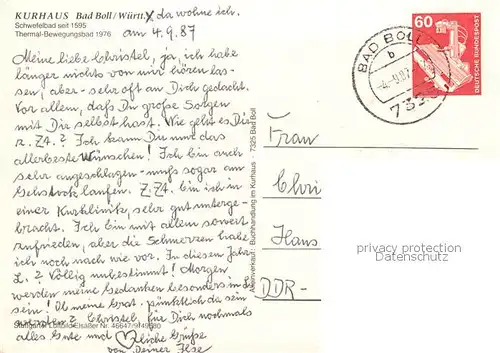 KURHAUS Bad Boll/Württ. X da wohne ich.
Schwefelbad seit 1595
Thermal-Bewegungsbad 1976
am 4.9.87
Meine liebe Christel, ja, ich habe
länger nichts von mir hören las-
sen, aber - sehr oft an Dich gedacht.
Vor allem, daß Du große Sorgen
mit Dir selbst hast. Wie geht es Dir
z. Zt.? Ich kann Dir nur das
allerbeste Wünschen! Ich bin auch
sehr angeschlagen - muß sogar am
Gehstock laufen. Z. Zt. bin ich in
einer Kurklinik, sehr gut unterge-
bracht. Ich bin mit soweit
zufrieden, aber die Schmerzen habe
ich noch nach wie vor. In diesem Jahr
L.? Völlig unbestimmt! Morgen
werden meine Gedanken besonders in L.
sein! Ob meine Grat. pünktlich da sein
Christel, für Dich nochmals
Stuttgarter Luftbild Elsäßer Nr.
alles Gute und liebe Grüße
von Deiner Ilse
Alleinverkauf: Buchhandlung im Kurhaus · 7325 Bad Boll
60
DEUTSCHE BUNDESPOST
BAD BOLL
b
7325
Frau
Chri
Hans
DDR-
proprietary protection
Datenschutz